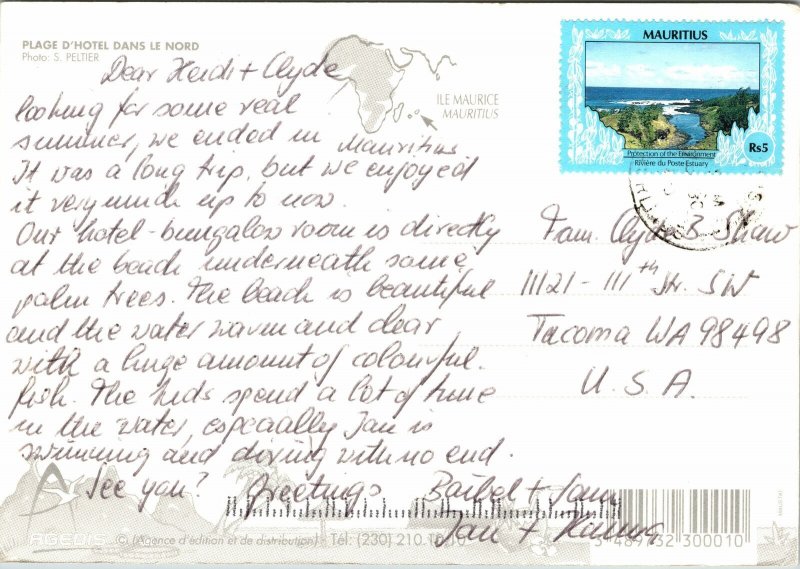 PLAGE D'HOTEL DANS LE NORD
Photo: S. PELTIER
ILE MAURICE
MAURITIUS
MAURITIUS
Protection of the Environment
Rivière du Poste Estuary
Rs5
Dear Heidi + Clyde
looking for some real
summer, we ended in Mauritius
It was a long trip, but we enjoyed
it very much up to now.
Our hotel-bungalow room is directly
at the beach underneath some
palm trees. The beach is beautiful
and the water warm and clear
with a huge amount of colourful
fish. The kids spend a lot of time
in the water, especially Jan is
swimming and diving with no end.
See you? Greetings Bärbel +
Jan + Hanna
Fam. Clyde B. Shaw
11121 - 111th Str. SW
Tacoma WA 98498
U.S.A.
AGEDIS
© (Agence d'édition et de distribution) - Tél: (230) 210 10
489132 300010